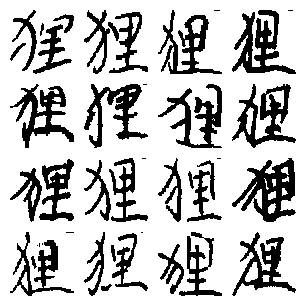 狸狸狸狸
狸狸狸狸
狸狸狸狸
狸狸狸狸